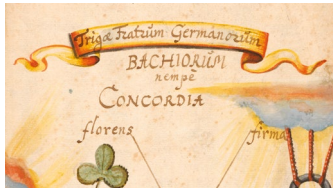 Trigæ Fratrum Germanorum
BACHIORUM
nempè
CONCORDIA
florens
firma